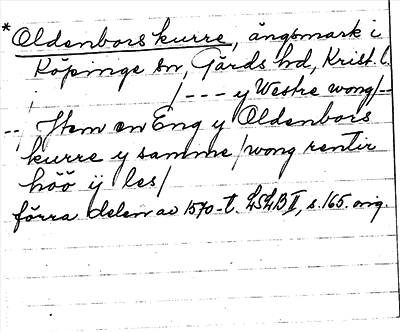 *Oldenbors kurre, ängsmark i
Köpinge sn, Gärds hd, Krist. l.
/--- y Westre wong/--
--, Item en Eng y Oldenbors
kurre y samme/wong rentir
höö ij les/
förra delen av 1570-t. LSLB II, s. 165. orig.